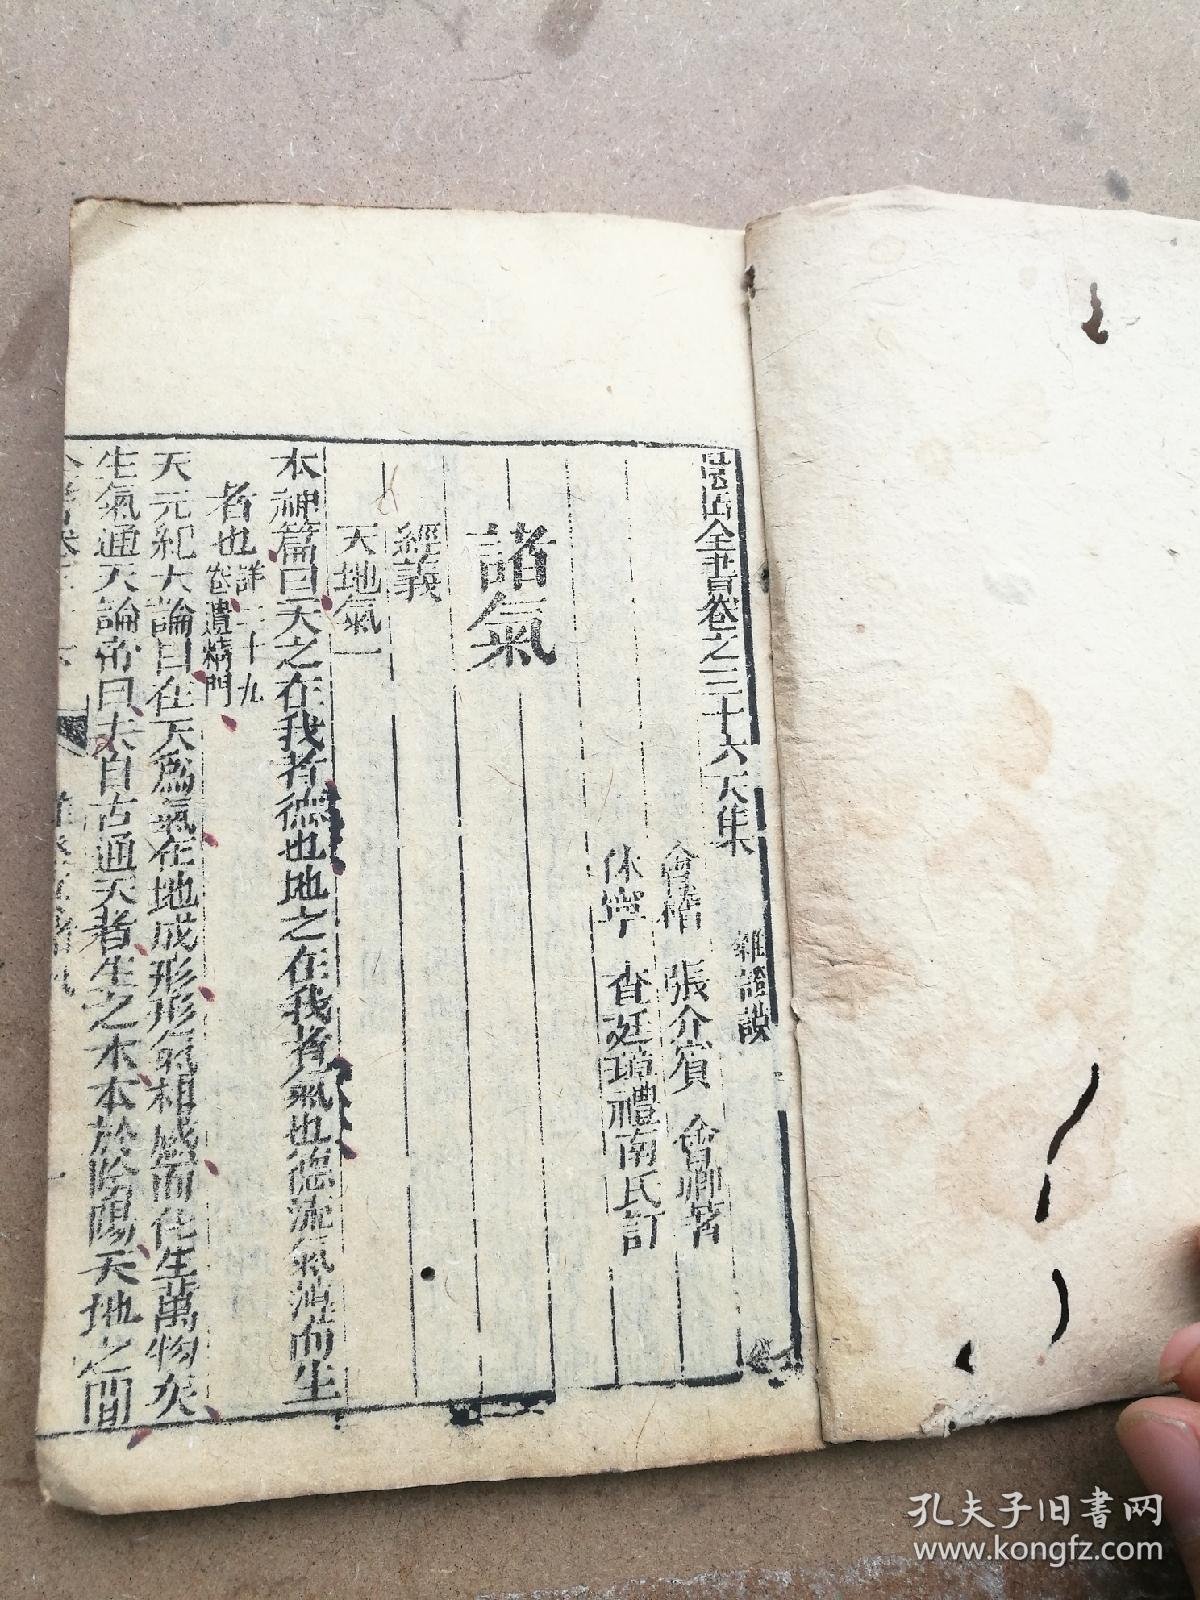 景岳全書卷之三十六天集
雜證謨
會稽 張介賓 會卿著
休寧 查廷璋禮南氏訂
諸氣
經義
天地氣一
本神篇曰天之在我者德也地之在我者氣也德流氣薄而生
者也詳二十九卷遺精門
天元紀大論曰在天爲氣在地成形形氣相感而化生萬物矣
生氣通天論帝曰夫自古通天者生之本本於陰陽天地之間
孔夫子旧书网
www.kongfz.com